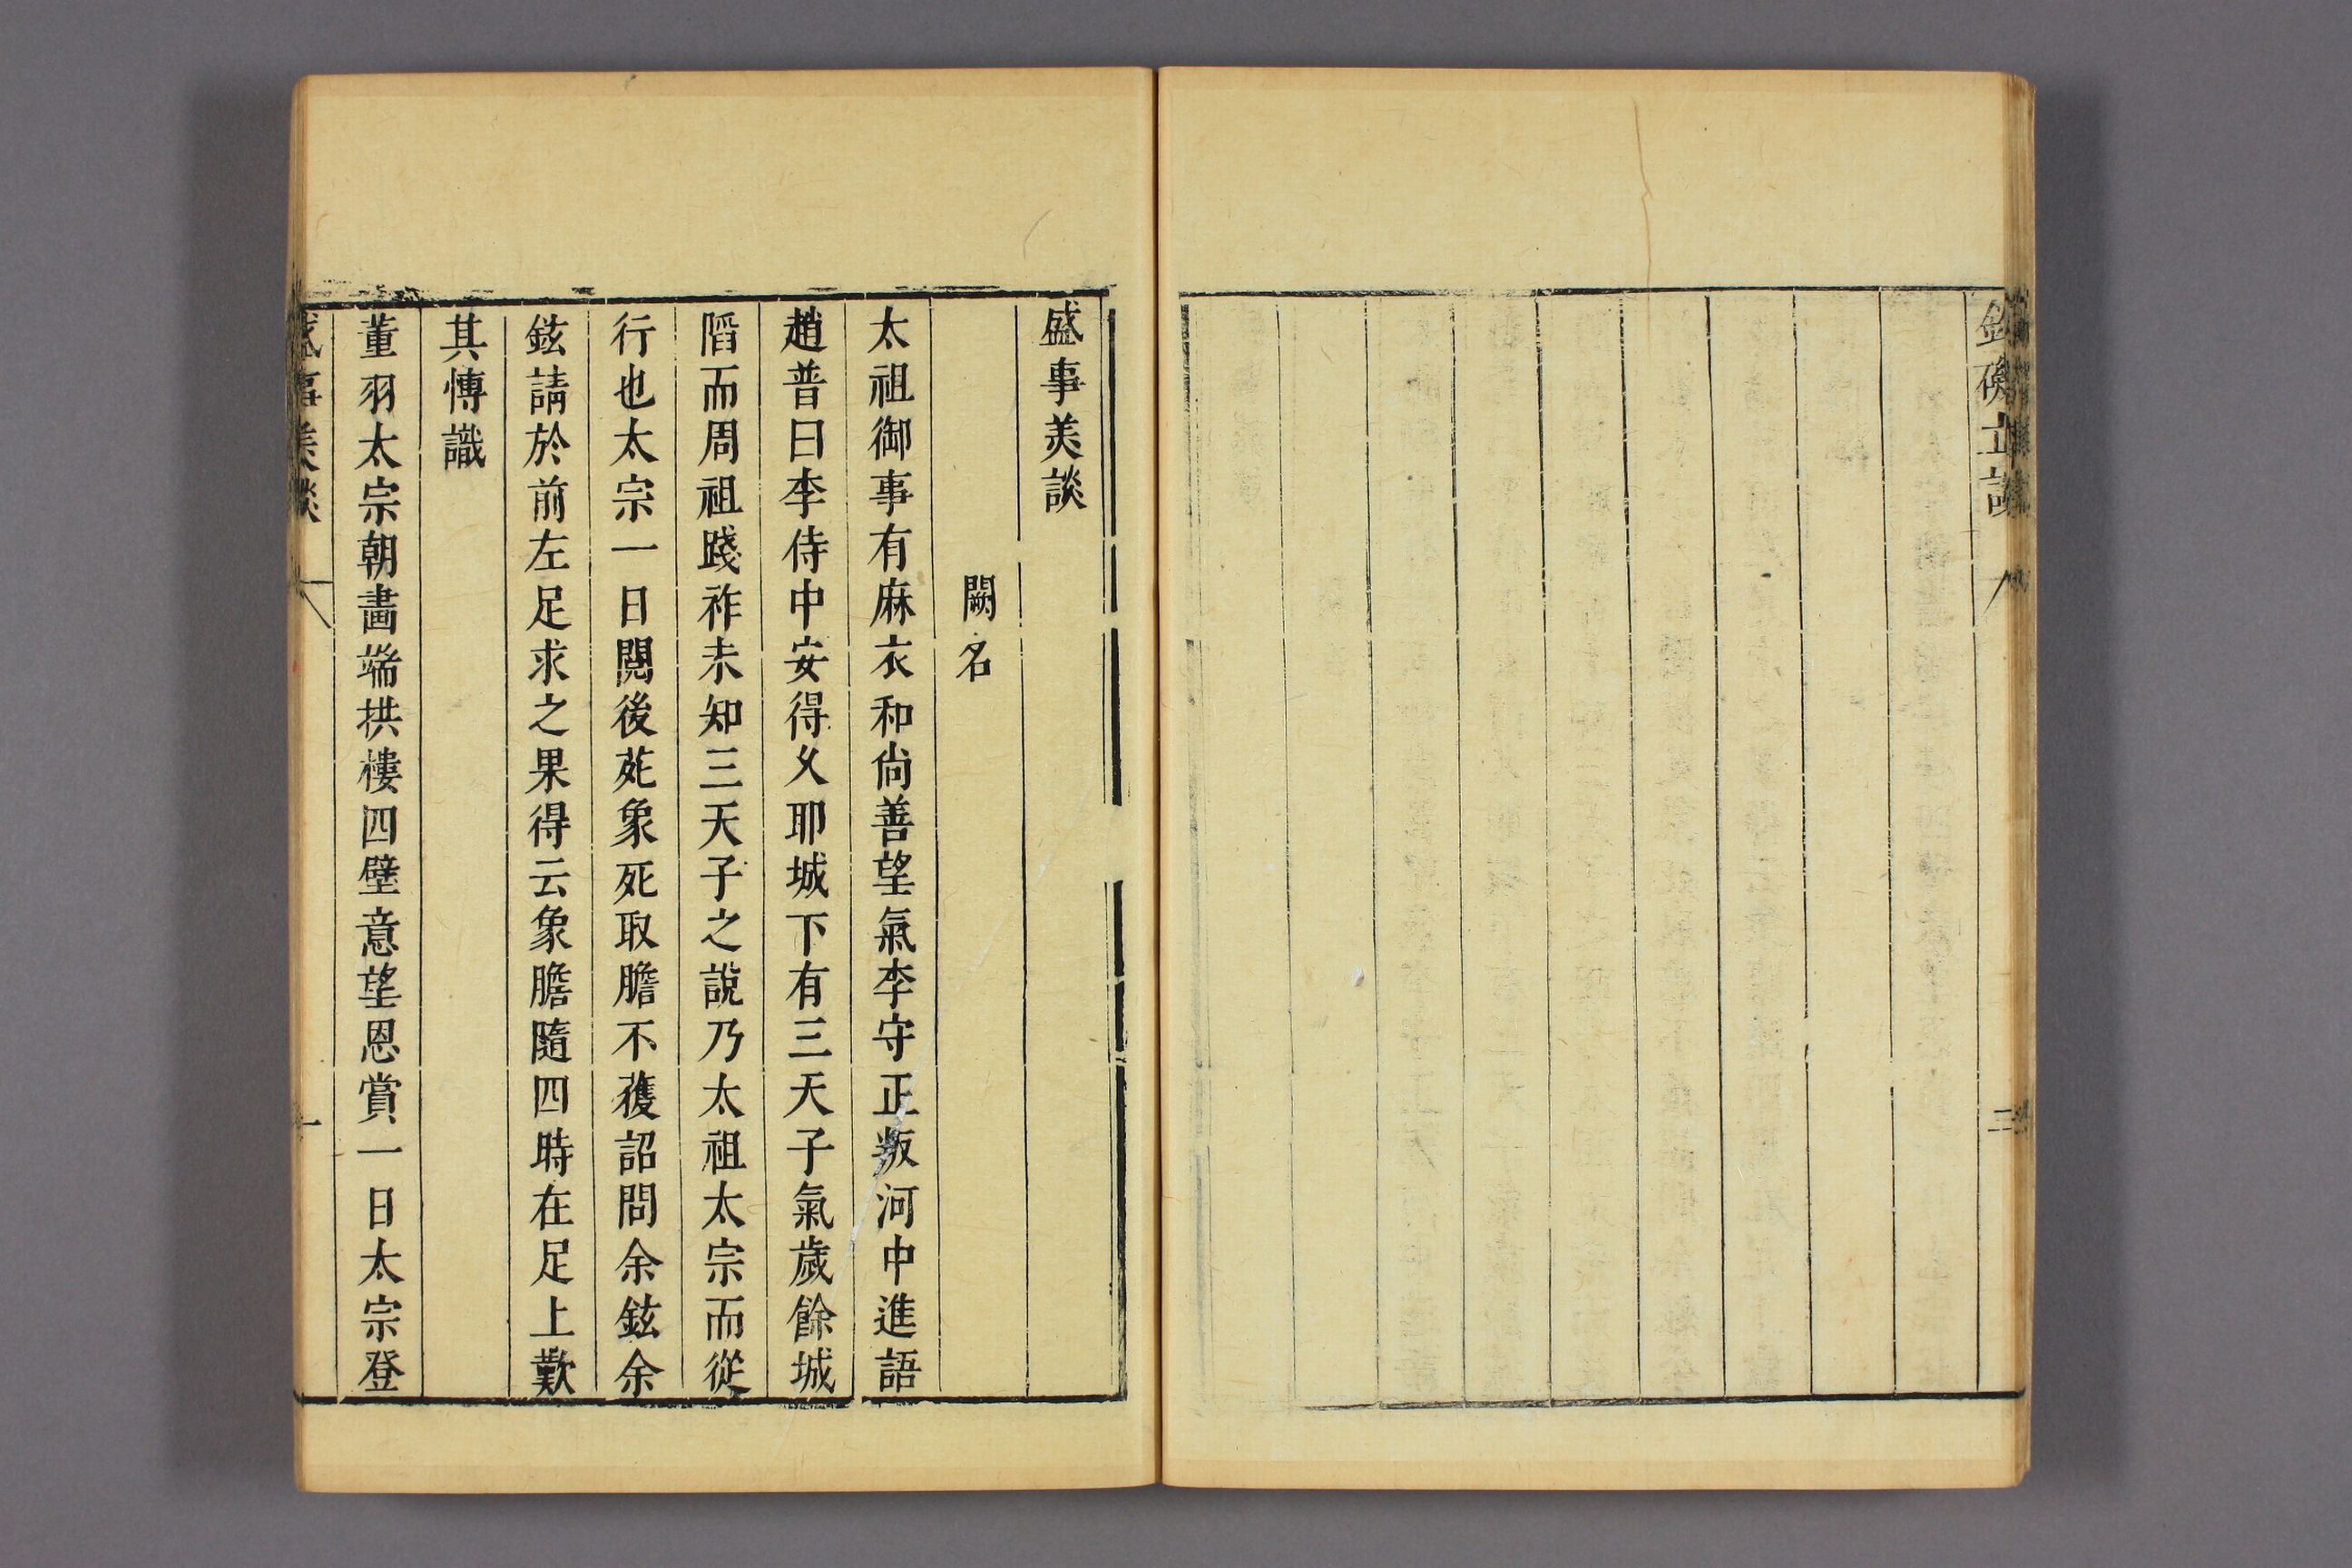 二
盛事美談
闕名
太祖御事有麻衣和尚善望氣李守正叛河中進語
趙普曰李侍中安得久耶城下有三天子氣歲餘城
陷而周祖踐祚未知三天子之說乃太祖太宗而從
行也太宗一日閱後苑象死取膽不獲詔問余鉉余
鉉請於前左足求之果得云象膽隨四時在足上歎
其愽識
董羽太宗朝畵端拱樓四壁意望恩賞一日太宗登
盛事美談
一